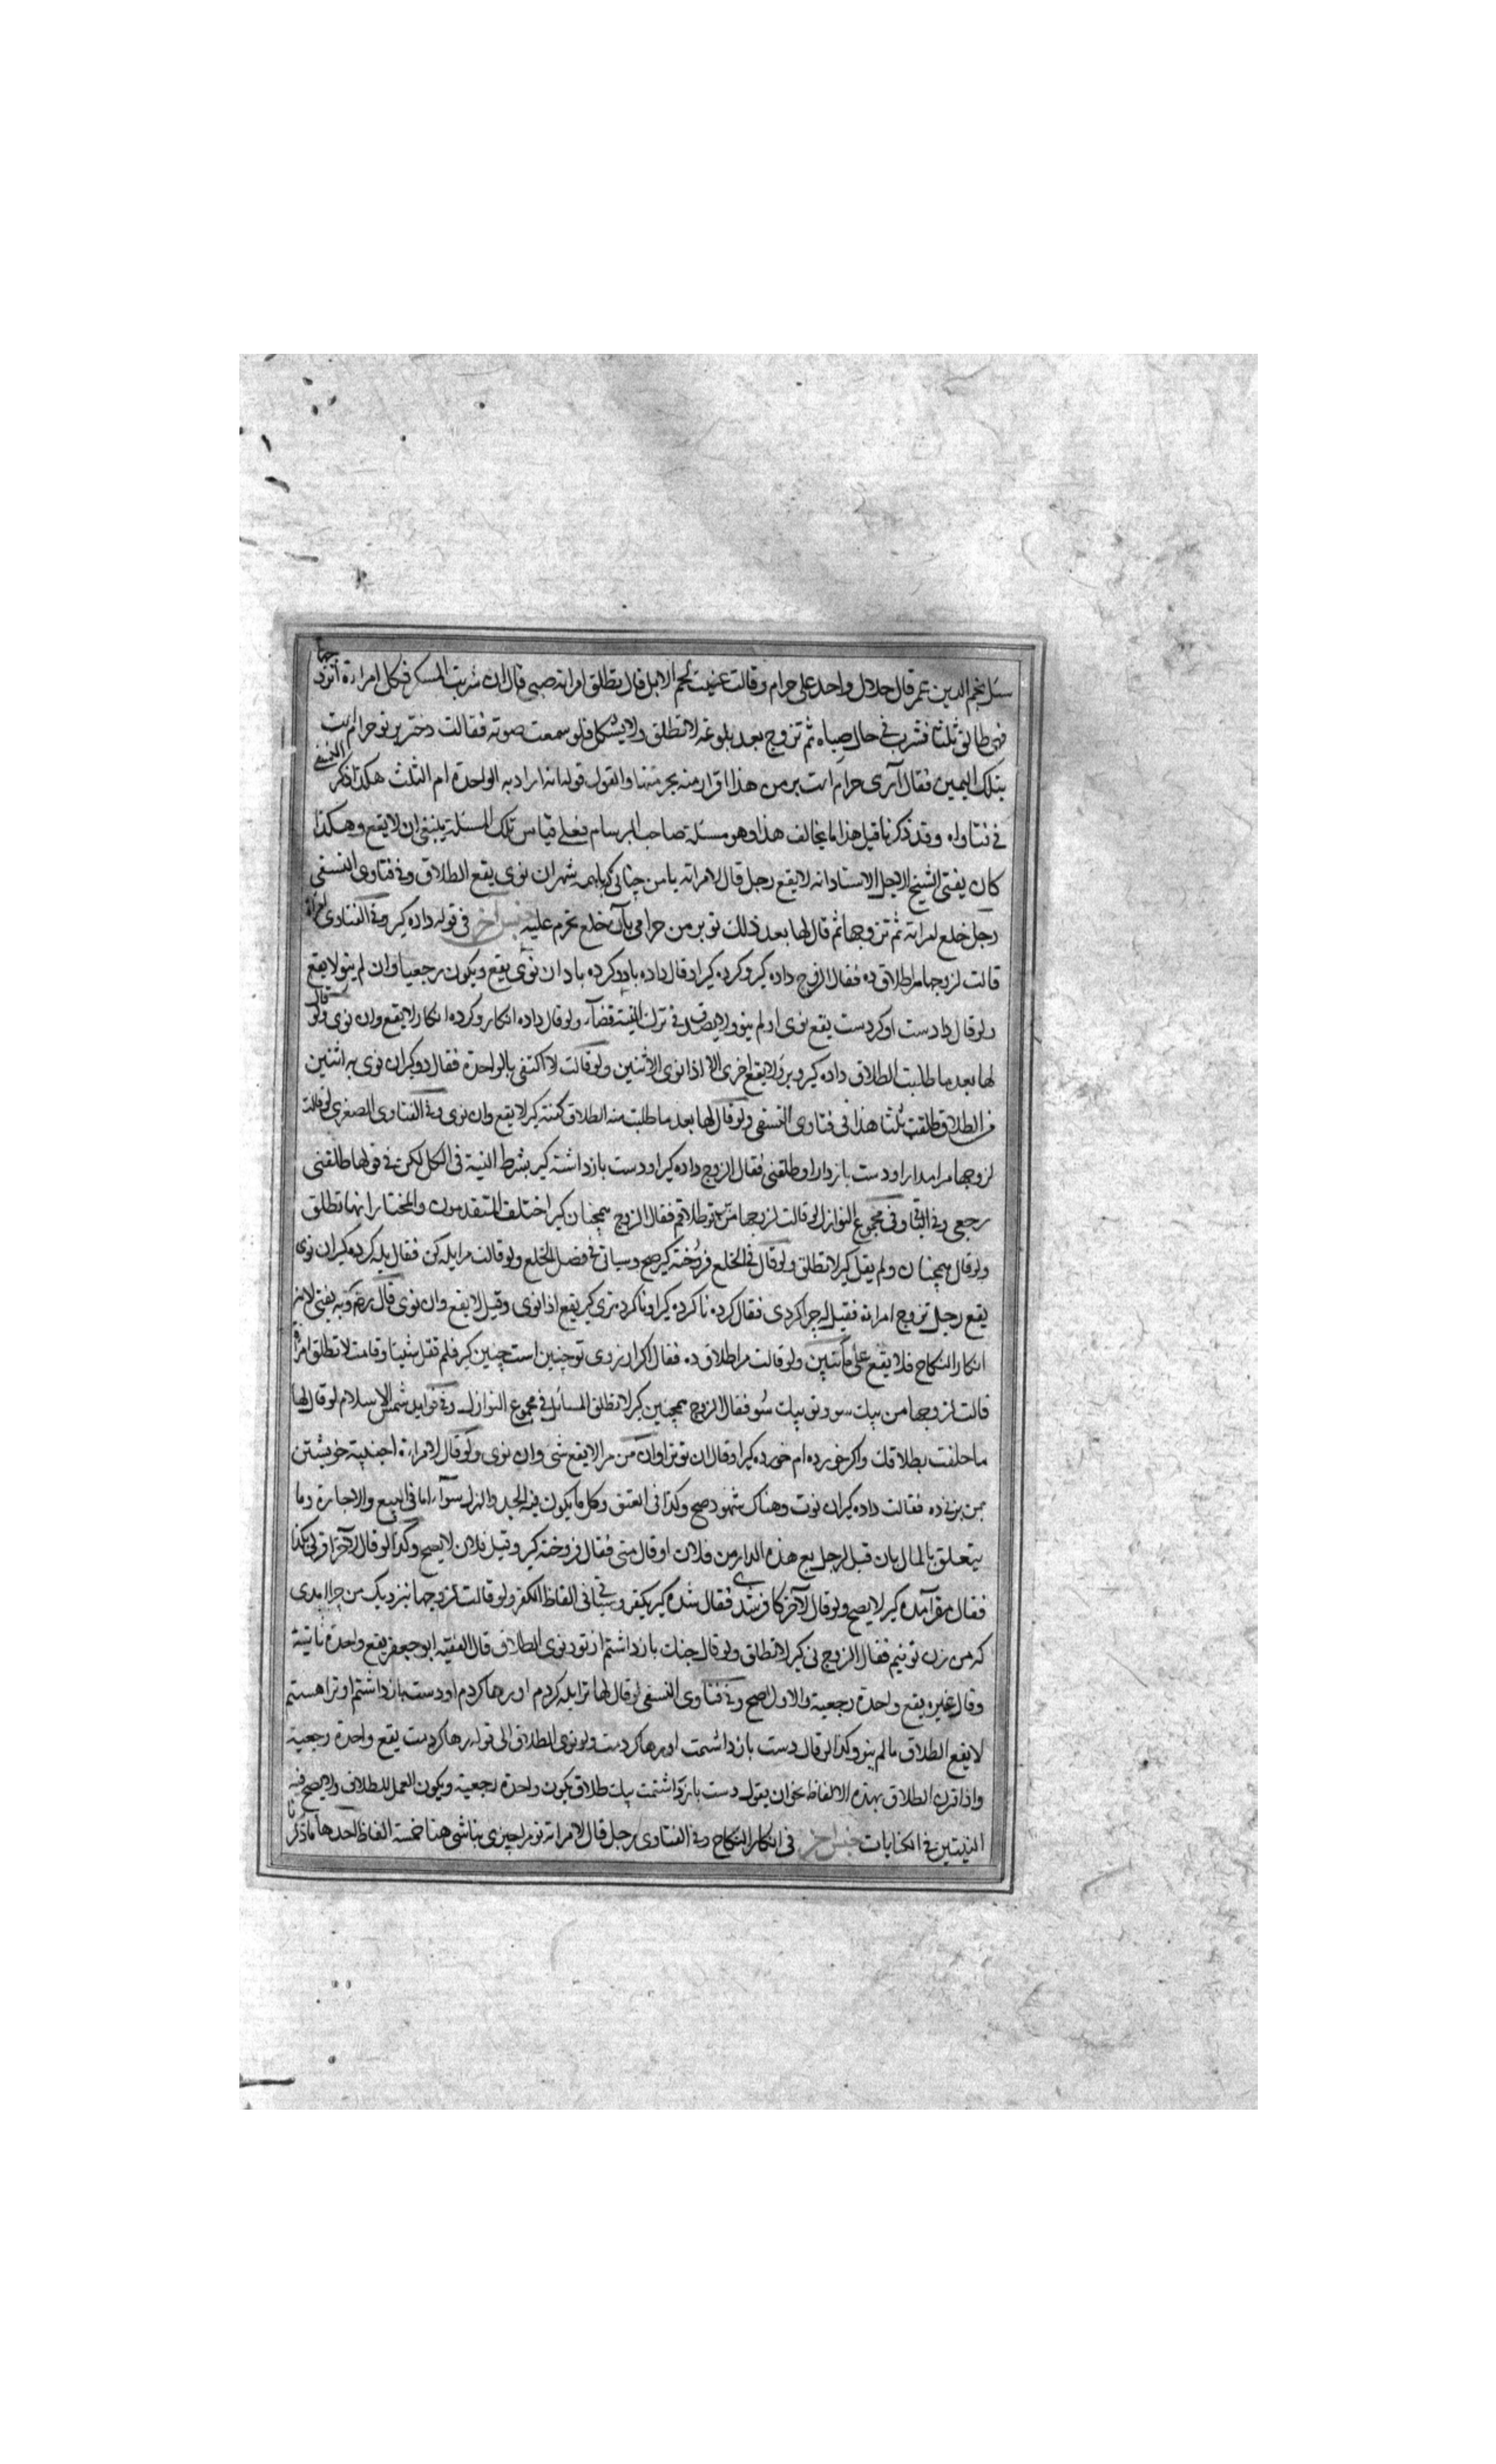 سئل نجم الدين عمر قال حلال واحد على حرام وقالت عنيت لحم الابل قال تطلق امراته صبي قال ان شربت المسكر فكل امراءة اتزوجها
فهي طالق ثلثا فشرب في حال صباه ثم تزوج بعد بلوغه لا تطلق ولا يشكل فلو سمعت صوته فقالت دختر بر تو حرام است
بتلك اليمين فقال آرى حرام است بر من هذا اقرار منه بحرمتها والقول قوله انه اراد به الواحدة ام الثلث هكذا ذكر النسفي
في فتاواه وقد ذكرنا قبل هذا ما يخالف هذا وهو مسئلة صاحب البرسام فعلى قياس تلك المسئلة ينبغي ان لا يقع وهكذا
كان يفتي الشيخ الاجل الاستاد انه لا يقع رجل قال لامراته با من چنانى كه باهمه شهر ان نوى يقع الطلاق وفي فتاوى النسفي
رجل خلع امراته ثم تزوجها ثم قال لها بعد ذلك تو بر من حرامى بآن خلع تحرم عليه جنس آخر في قوله داده كير وفي الفتاوى امراة
قالت لزوجها مرا طلاق ده فقال الزوج داده كير وكرده كير او قال داده باد وكرده باد ان نوى يقع ويكون رجعيا وان لم ينو لا يقع
ولو قال دادست او كردست يقع نوى او لم ينو ولا يصدق في ترك النية قضآء ولو قال داده انكار وكرده انكار لا يقع وان نوى ولو قال
لها بعد ما طلبت الطلاق داده كير وبرو لا يقع اخرى الا اذا نوى الاثنين ولو قالت لا اكتفي بالواحدة فقال دو كير ان نوى به اثنتين
من الطلاق طلقت ثلثا هذا في فتاوى النسفي ولو قال لها بعد ما طلبت منه الطلاق كفته كير لا يقع وان نوى وفي الفتاوى الصغرى لو قالت
لزوجها مرا مدار او دست باز دار او طلقني فقال الزوج داده كير او دست باز داشته كير بشرط النية في الكل لكن في قولها طلقني
رجعي وفي الباقي وفي مجموع النوازل لو قالت لزوجها من بر تو طلاقم فقال الزوج همچنان كير اختلف المتقدمون والمختار انها تطلق
ولو قال همچنان ولم يقل كير لا تطلق ولو قال في الخلع فروخته كير صح وسياتي في فصل الخلع ولو قالت مرا يله كن فقال يله كرده كير ان نوى
يقع رجل تزوج امراته فقيل له چرا كردى فقال كرده نا كرده كير او نا كرده ترى كير يقع اذا نوى وقيل لا يقع وان نوى قال رضه وبه يفتى لانه
انكار النكاح فلا يقع على ما نبين ولو قالت مرا طلاق ده فقال اكر ارزوى تو چنين است چنين كير فلم تقل شيئا وقامت لا تطلق امراة
قالت لزوجها من بيك سو وتو بيك سو فقال الزوج همچنين كير لا تطلق المسائل في مجموع النوازل وفي فوايد شمس الاسلام لو قال لها
ما حلفت بطلاقك واكر خورده ام خورده كير او قال ان تو ترا وان من مرا لا يقع شئ وان نوى ولو قال لامراءة اجنبية خويشتن
بمن بزنى ده فقالت داده كير ان نوت وهناك شهود صح وكذا في العتق وكل ما يكون فيه الجد والهزل سوآء اما في البيع والاجارة وما
يتعلق بالمال بان قيل لرجل بع هذه الدار من فلان او قال منى فقال فروخته كير وقبل فلان لا يصح وكذا لو قال لآخر اقر لي بكذا
فقال مقر آمده كير لا يصح ولو قال لآخر كافر شدى فقال شده كير يكفر وسياتي في الفاظ الكفر ولو قالت لزوجها بنزديك من چرا امدى
كه من زن تو نيم فقال الزوج نى كير لا تطلق ولو قال چنك باز داشتم از تو ونوى الطلاق قال الفقيه ابو جعفر يقع واحدة بائنة
وقال غيره يقع واحدة رجعية والاول اصح وفي فتاوى النسفي لو قال لها ترا يله كردم او رها كردم او دست باز داشتم او ترا هستم
لا يقع الطلاق ما لم ينو وكذا لو قال دست باز داشمت او رها كردمت ولو نوى الطلاق الى قوله رها كردمت يقع واحدة رجعية
واذا قرن الطلاق بهذه الالفاظ نحو ان يقول دست باز داشتمت بيك طلاق يكون واحدة رجعية ويكون العمل للطلاق ولا يصح فيه
النيتين في الكنايات جنس آخر في انكار النكاح وفي الفتاوى رجل قال لامراته تو مرا چيزى نباشى هنا خمسة الفاظ احدها ما ذكرنا